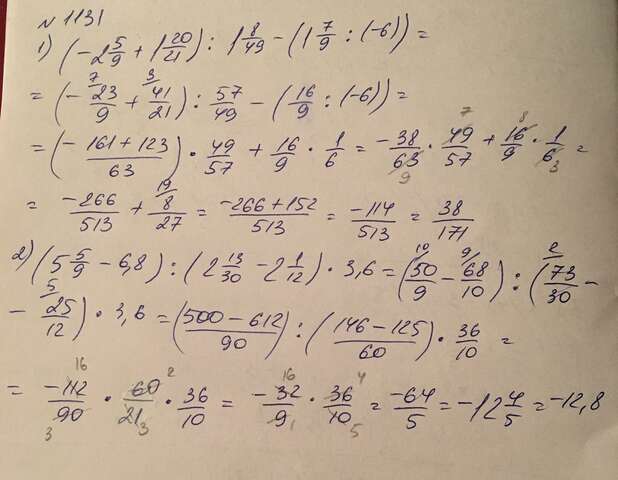 № 1131
1) (-2 5/9 + 1 20/21) : 1 8/49 - (1 7/9 : (-6)) =
= (- 23/9 ⁷ + 41/21 ³) : 57/49 - (16/9 : (-6)) =
= (- 161+123/63) · 49/57 + 16/9 · 1/6 = -38/63 9 · 49 7/57 + 16 8/9 · 1/6 3 =
= -266/513 + 8/27 ¹⁹ = -266+152/513 = -114/513 = 38/171
2) (5 5/9 - 6,8) : (2 13/30 - 2 1/12) · 3,6 = (50/9 ¹⁰ - 68/10 ⁹) : (73/30 ² -
- 25/12 ⁵) · 3,6 = (500-612/90) : (146-125/60) · 36/10 =
= -112 16/90 3 · 60 2/21 3 · 36/10 = -32 16/9 1 · 36 4/10 5 = -64/5 = -12 4/5 = -12,8